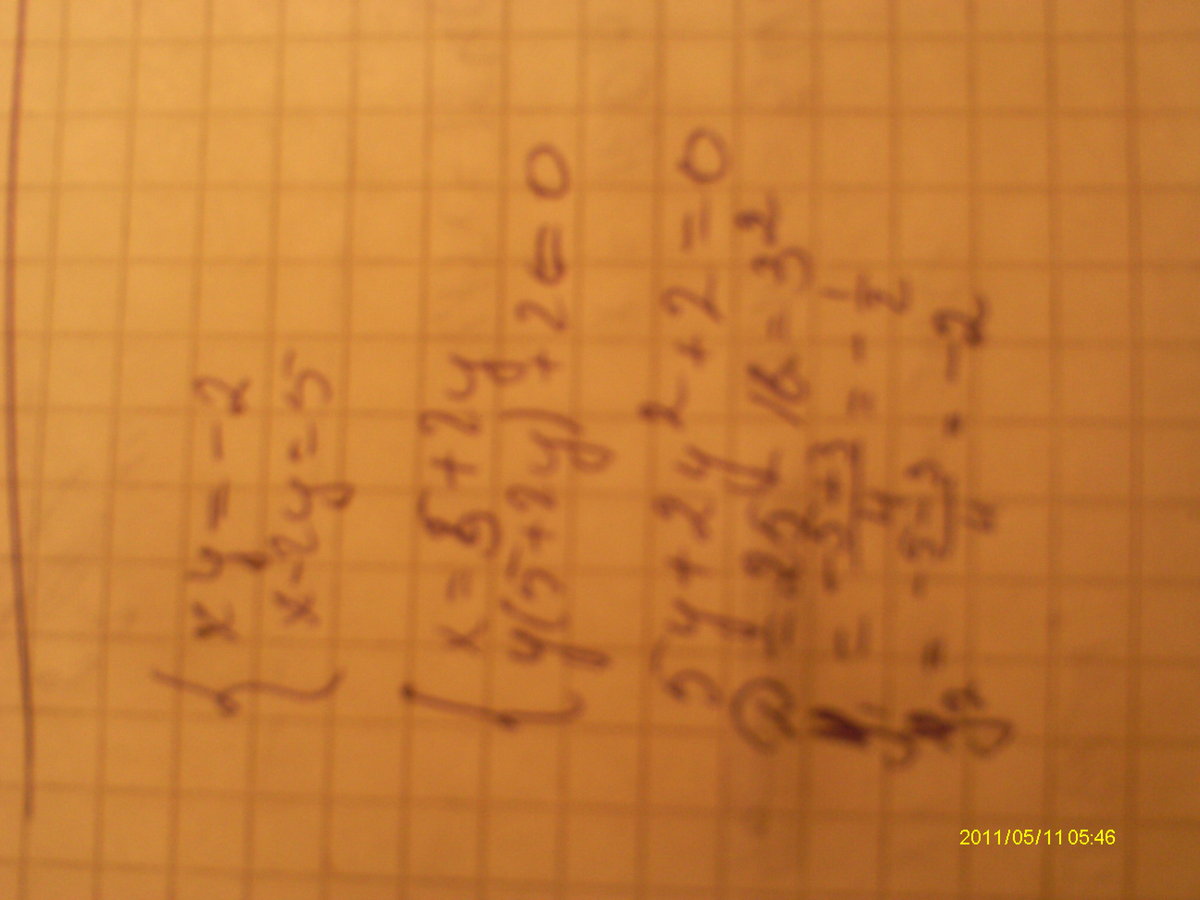 { xy = -2
x-2y=5
{ x = 5 + 2y
y(5+2y)+2=0
5y + 2y² + 2 = 0
D = 25-16 = 3²
y₁ = -5+3/4 = -1/2
y₂ = -5-3/4 = -2
2011/05/11 05:46